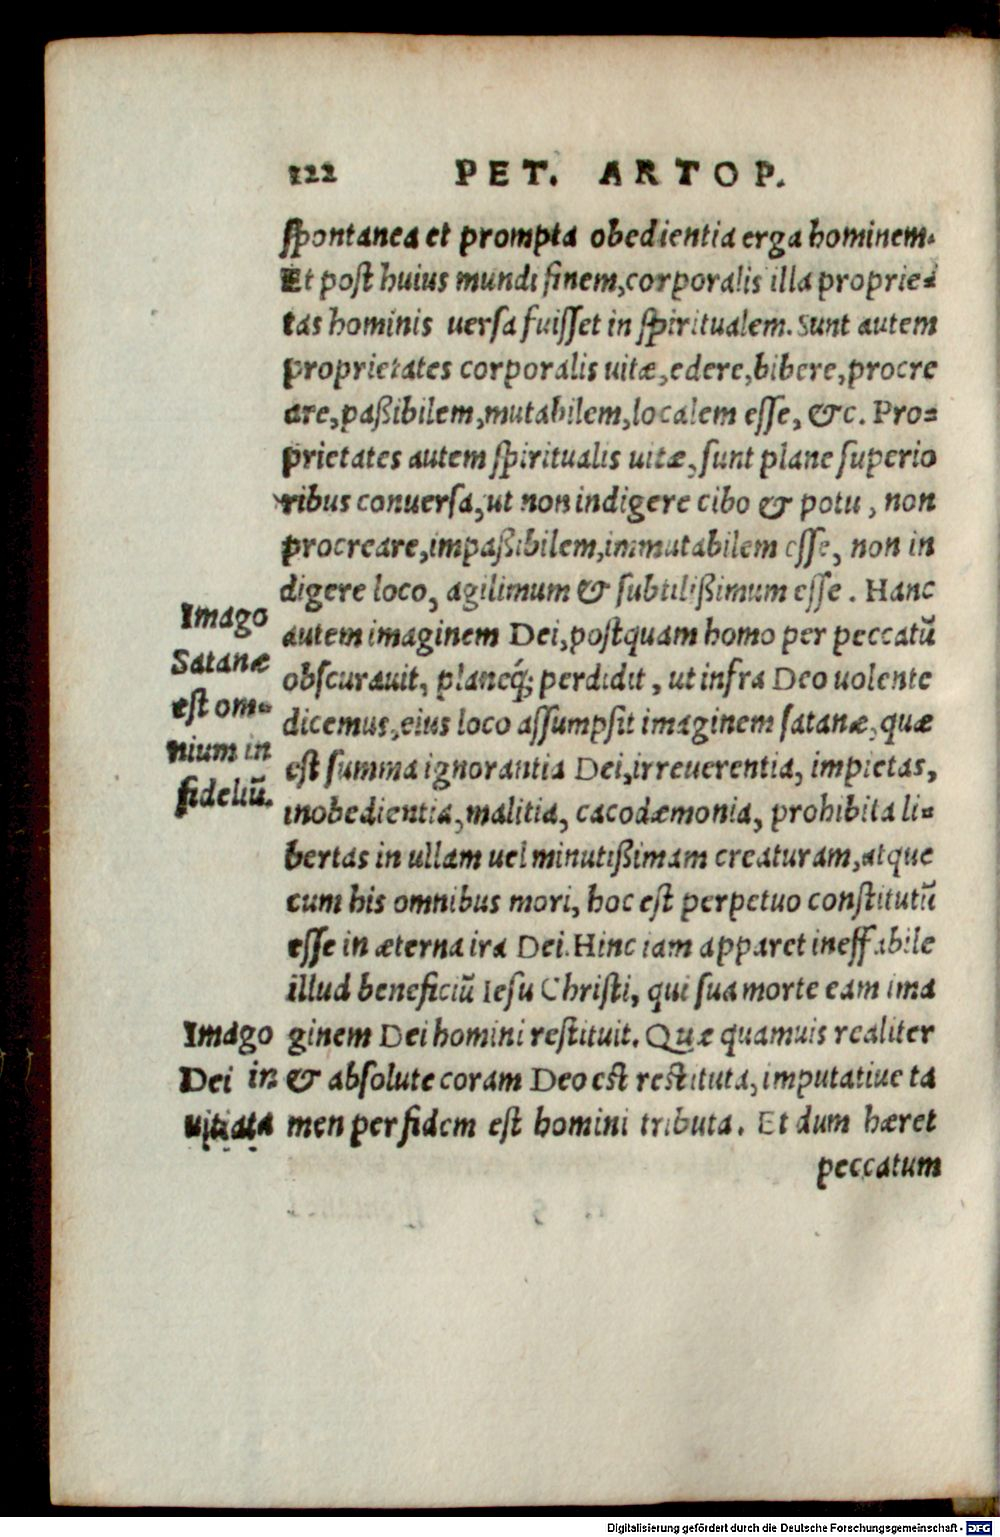 122 PET. ARTOP.
spontanea et prompta obedientia erga hominem.
Et post huius mundi finem, corporalis illa proprie=
tas hominis uersa fuisset in spiritualem. Sunt autem
proprietates corporalis uitæ, edere, bibere, procre
are, paßibilem, mutabilem, localem esse, &c. Pro=
prietates autem spiritualis uitæ, sunt plane superio
ribus conuersa, ut non indigere cibo & potu, non
procreare, impaßibilem, immutabilem esse, non in
digere loco, agilimum & subtilißimum esse. Hanc
autem imaginem Dei, postquam homo per peccatũ
obscurauit, planeq́; perdidit, ut infra Deo uolente
dicemus, eius loco assumpsit imaginem satanæ, quæ
est summa ignorantia Dei, irreuerentia, impietas,
inobedientia, malitia, cacodæmonia, prohibita li=
bertas in ullam uel minutißimam creaturam, atque
cum his omnibus mori, hoc est perpetuo constitutũ
esse in æterna ira Dei. Hinc iam apparet ineffabile
illud beneficiũ Iesu Christi, qui sua morte eam ima
ginem Dei homini restituit. Quæ quamuis realiter
& absolute coram Deo est restituta, imputatiue ta
men per fidem est homini tributa. Et dum hæret
peccatum
Imago
Satanæ
est om=
nium in
fideliũ.
Imago
Dei in
uitiata
Digitalisierung gefördert durch die Deutsche Forschungsgemeinschaft - DFG